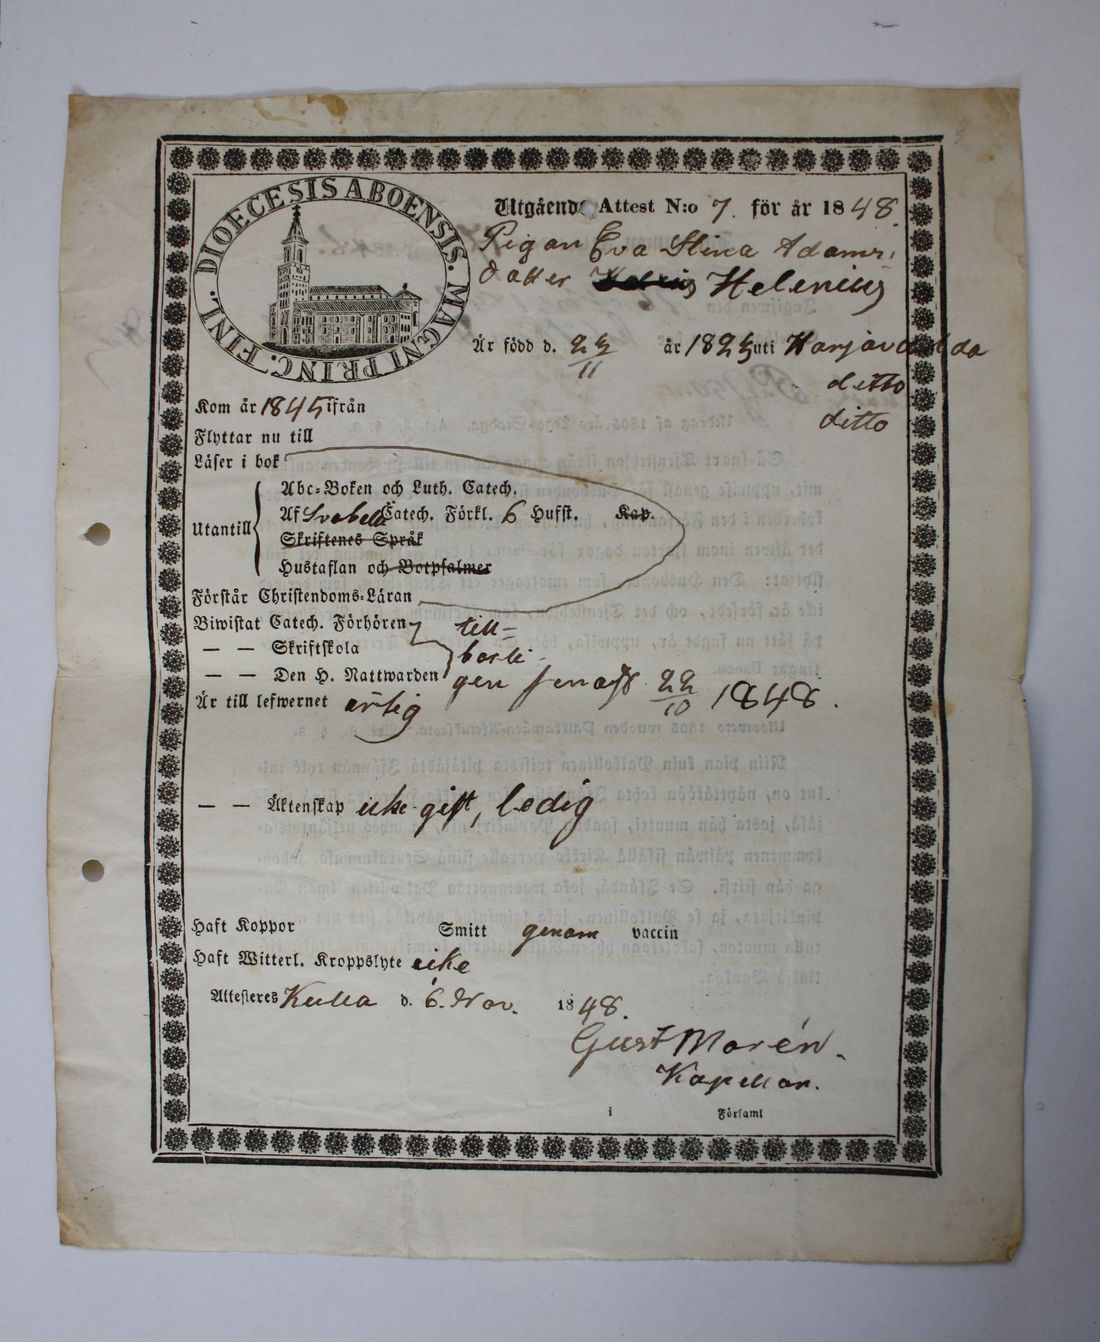 DIOECESIS ABOENSIS. MAGNI PRINC. FINL.
Utgående Attest N:o 7. för år 1848
Pigan Eva Stina Adams
dotter Helenius
Är född d. 22/11 år 1825 uti Harjavalda
ditto
Kom år 1845 ifrån
ditto
Flyttar nu till
Läser i bok
Utantill
Abc-Boken och Luth. Catech.
Af Svebelii Catech. Förkl. 6 Hufst. Kap.
Skriftenes Språk
Hustaflan och Botpsalmer
Förstår Christendoms-Läran
Biwistat Catech. Förhören till-
— — Skriftskola börli-
— — Den H. Nattwarden gen senast 22/10 1848.
Är till lefwernet ärlig
— — Äktenskap icke gift, ledig
Haft Koppor Smitt genom vaccin
Haft Witterl. Kroppslyte icke
Attesteres Kulla d. 6. Nov. 1848.
Gust Morén.
Kapellan.
i Församl